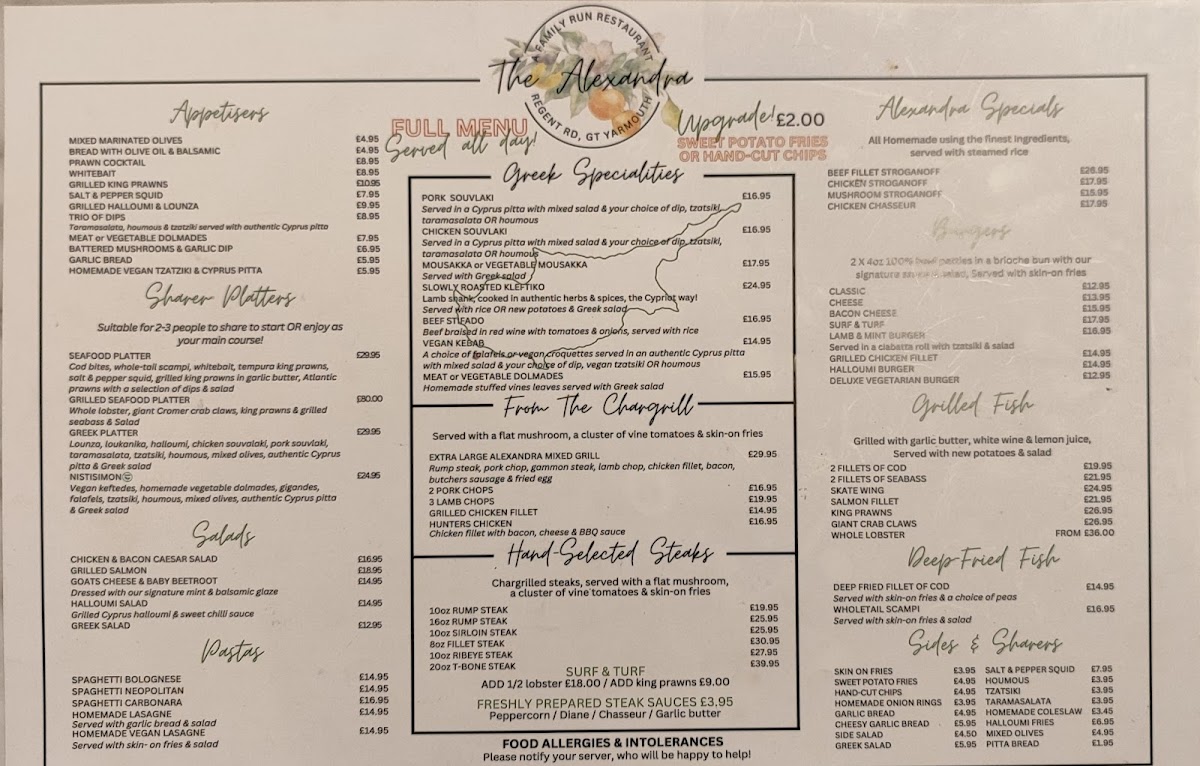 A FAMILY RUN RESTAURANT
The Alexandra
REGENT RD, GT YARMOUTH
FULL MENU
Served all day!
Upgrade! £2.00
SWEET POTATO FRIES
OR HAND-CUT CHIPS
Appetisers
MIXED MARINATED OLIVES £4.95
BREAD WITH OLIVE OIL & BALSAMIC £4.95
PRAWN COCKTAIL £8.95
WHITEBAIT £8.95
GRILLED KING PRAWNS £10.95
SALT & PEPPER SQUID £7.95
GRILLED HALLOUMI & LOUNZA £9.95
TRIO OF DIPS £8.95
Taramasalata, houmous & tzatziki served with authentic Cyprus pitta
MEAT or VEGETABLE DOLMADES £7.95
BATTERED MUSHROOMS & GARLIC DIP £6.95
GARLIC BREAD £5.95
HOMEMADE VEGAN TZATZIKI & CYPRUS PITTA £5.95
Sharer Platters
Suitable for 2-3 people to share to start OR enjoy as
your main course!
SEAFOOD PLATTER £29.95
Cod bites, whole-tail scampi, whitebait, tempura king prawns,
salt & pepper squid, grilled king prawns in garlic butter, Atlantic
prawns with a selection of dips & salad
GRILLED SEAFOOD PLATTER £80.00
Whole lobster, giant Cromer crab claws, king prawns & grilled
seabass & Salad
GREEK PLATTER £29.95
Lounza, loukanika, halloumi, chicken souvalaki, pork souvlaki,
taramasalata, tzatsiki, houmous, mixed olives, authentic Cyprus
pitta & Greek salad
NISTISIMON £24.95
Vegan keftedes, homemade vegetable dolmades, gigandes,
falafels, tzatsiki, houmous, mixed olives, authentic Cyprus pitta
& Greek salad
Salads
CHICKEN & BACON CAESAR SALAD £16.95
GRILLED SALMON £18.95
GOATS CHEESE & BABY BEETROOT £14.95
Dressed with our signature mint & balsamic glaze
HALLOUMI SALAD £14.95
Grilled Cyprus halloumi & sweet chilli sauce
GREEK SALAD £12.95
Pastas
SPAGHETTI BOLOGNESE £14.95
SPAGHETTI NEOPOLITAN £14.95
SPAGHETTI CARBONARA £16.95
HOMEMADE LASAGNE £14.95
Served with garlic bread & salad
HOMEMADE VEGAN LASAGNE £14.95
Served with skin- on fries & salad
Greek Specialities
PORK SOUVLAKI £16.95
Served in a Cyprus pitta with mixed salad & your choice of dip, tzatsiki,
taramasalata OR houmous
CHICKEN SOUVLAKI £16.95
Served in a Cyprus pitta with mixed salad & your choice of dip, tzatsiki,
taramasalata OR houmous
MOUSAKKA or VEGETABLE MOUSAKKA £17.95
Served with Greek salad
SLOWLY ROASTED KLEFTIKO £24.95
Lamb shank, cooked in authentic herbs & spices, the Cypriot way!
Served with rice OR new potatoes & Greek salad
BEEF STIFADO £16.95
Beef braised in red wine with tomatoes & onions, served with rice
VEGAN KEBAB £14.95
A choice of falafels or vegan croquettes served in an authentic Cyprus pitta
with mixed salad & your choice of dip, vegan tzatziki OR houmous
MEAT or VEGETABLE DOLMADES £15.95
Homemade stuffed vines leaves served with Greek salad
From The Chargrill
Served with a flat mushroom, a cluster of vine tomatoes & skin-on fries
EXTRA LARGE ALEXANDRA MIXED GRILL £29.95
Rump steak, pork chop, gammon steak, lamb chop, chicken fillet, bacon,
butchers sausage & fried egg
2 PORK CHOPS £16.95
3 LAMB CHOPS £19.95
GRILLED CHICKEN FILLET £14.95
HUNTERS CHICKEN £16.95
Chicken fillet with bacon, cheese & BBQ sauce
Hand-Selected Steaks
Chargrilled steaks, served with a flat mushroom,
a cluster of vine tomatoes & skin-on fries
10oz RUMP STEAK £19.95
16oz RUMP STEAK £25.95
10oz SIRLOIN STEAK £25.95
8oz FILLET STEAK £30.95
10oz RIBEYE STEAK £27.95
20oz T-BONE STEAK £39.95
SURF & TURF
ADD 1/2 lobster £18.00 / ADD king prawns £9.00
FRESHLY PREPARED STEAK SAUCES £3.95
Peppercorn / Diane / Chasseur / Garlic butter
FOOD ALLERGIES & INTOLERANCES
Please notify your server, who will be happy to help!
Alexandra Specials
All Homemade using the finest ingredients,
served with steamed rice
BEEF FILLET STROGANOFF £26.95
CHICKEN STROGANOFF £17.95
MUSHROOM STROGANOFF £15.95
CHICKEN CHASSEUR £17.95
Burgers
2 X 4oz 100% beef patties in a brioche bun with our
signature sauce & salad, Served with skin-on fries
CLASSIC £12.95
CHEESE £13.95
BACON CHEESE £15.95
SURF & TURF £17.95
LAMB & MINT BURGER £16.95
Served in a ciabatta roll with tzatsiki & salad
GRILLED CHICKEN FILLET £14.95
HALLOUMI BURGER £14.95
DELUXE VEGETARIAN BURGER £12.95
Grilled Fish
Grilled with garlic butter, white wine & lemon juice,
Served with new potatoes & salad
2 FILLETS OF COD £19.95
2 FILLETS OF SEABASS £21.95
SKATE WING £24.95
SALMON FILLET £21.95
KING PRAWNS £26.95
GIANT CRAB CLAWS £26.95
WHOLE LOBSTER FROM £36.00
Deep-Fried Fish
DEEP FRIED FILLET OF COD £14.95
Served with skin-on fries & a choice of peas
WHOLETAIL SCAMPI £16.95
Served with skin-on fries & salad
Sides & Sharers
SKIN ON FRIES £3.95 SALT & PEPPER SQUID £7.95
SWEET POTATO FRIES £4.95 HOUMOUS £3.95
HAND-CUT CHIPS £4.95 TZATSIKI £3.95
HOMEMADE ONION RINGS £3.95 TARAMASALATA £3.95
GARLIC BREAD £4.95 HOMEMADE COLESLAW £3.45
CHEESY GARLIC BREAD £5.95 HALLOUMI FRIES £6.95
SIDE SALAD £4.50 MIXED OLIVES £4.95
GREEK SALAD £5.95 PITTA BREAD £1.95